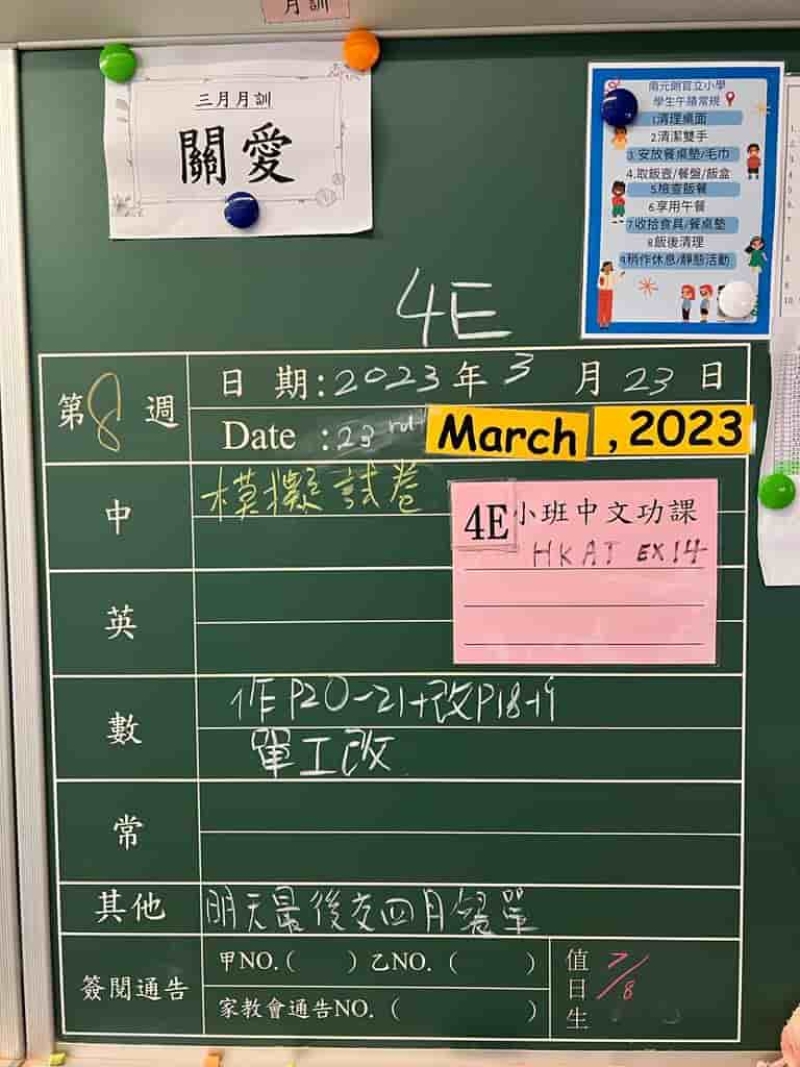 月訓
三月月訓
關愛
南元朗官立小學
學生午膳常規
1.清理桌面
2.清潔雙手
3.安放餐桌墊/毛巾
4.取飯壺/餐盤/飯盒
5.檢查飯餐
6.享用午餐
7.收拾食具/餐桌墊
8.飯後清理
9.稍作休息/靜態活動
4E
第8週
日期:2023年3月23日
Date :23rd March ,2023
中
模擬試卷
4E小班中文功課
HKAT EX14
英
數
作P20-21+改P18-19
單工改
常
其他
明天最後交四月餐單
簽閱通告
甲NO.( ) 乙NO. ( )
家教會通告NO. ( )
值日生 7/8